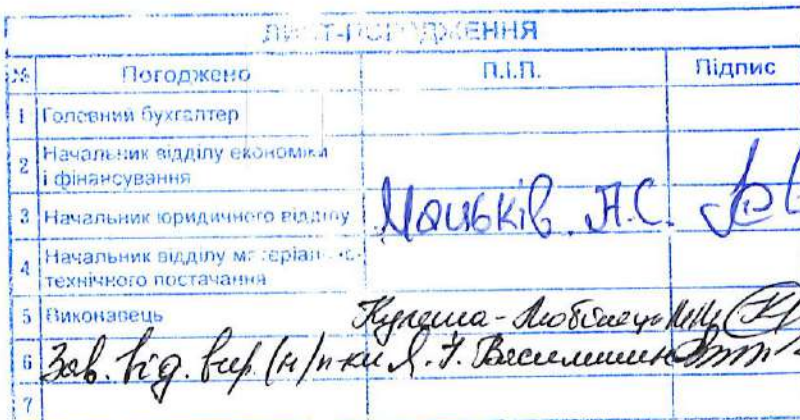 ЛИСТ-ПОГОДЖЕННЯ
№ Погоджено П.І.П. Підпис
1 Головний бухгалтер
2 Начальник відділу економіки
і фінансування
3 Начальник юридичного відділу Маньків А.С.
4 Начальник відділу матеріально-
технічного постачання
5 Виконавець Кулеша-Любінець
6 Зав. від. вир. (н)/п-ки Василишин
7